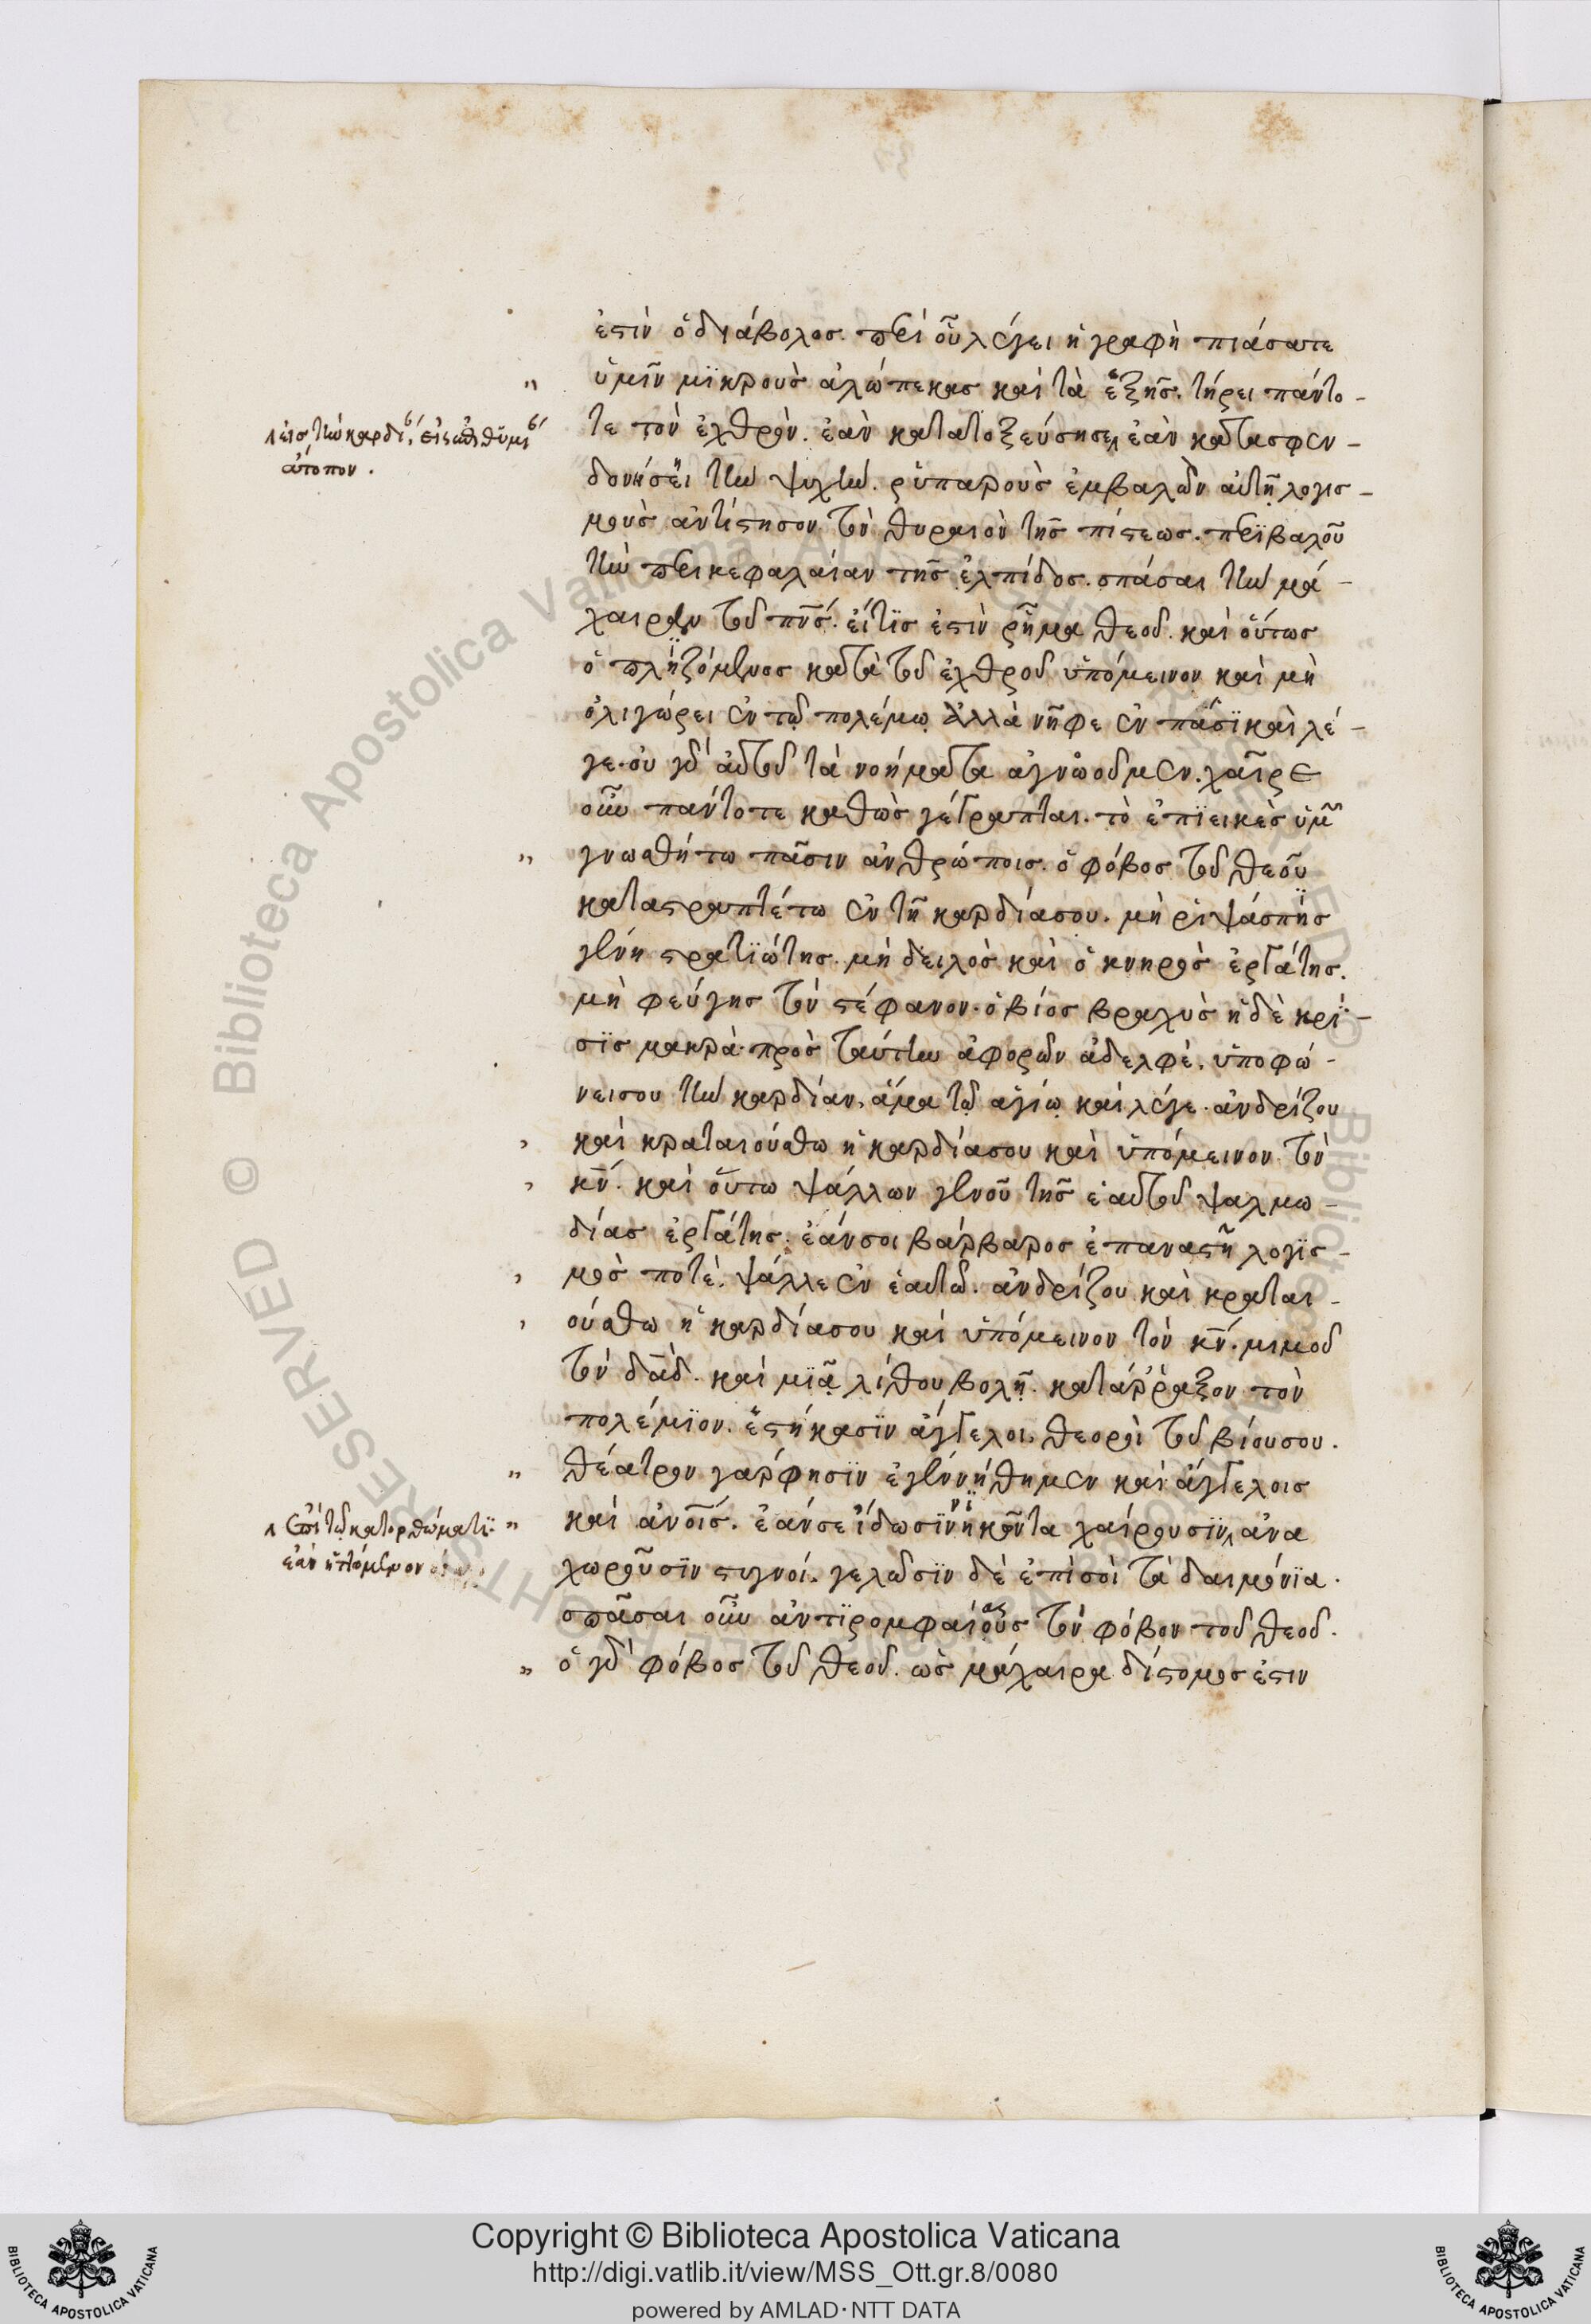 ἐστὶν ὁ διάβολος. περὶ οὗ λέγει ἡ γραφὴ πιάσατε
ὑμῖν μϊκροὺς ἀλώπεκας καὶ τὰ ἑξῆς. τήρει πάντο-
τε τὸν ἐχθρὸν. ἐὰν κατατοξεύσησε ἐὰν κατασφεν-
δονήσει τὴν ψυχὴν. ῥυπαροὺς ἐμβαλὼν αὐτῇ λογισ-
μοὺς ἀντίστησον τὸν θυραιὸν τῆς πίστεως. περϊβαλοῦ
τὴν περικεφαλαίαν τῆς ἐλπίδος. σπάσαι τὴν μά-
χαιραν τοῦ πνς. εἴτϊς ἐστὶν ῥῆμα θεοῦ. καὶ οὕτως
ὁ πληζόμενος κατὰ τοῦ ἐχθροῦ ὑπόμεινον καὶ μὴ
ὀλιγώρει ἐν τῷ πολέμῳ ἀλλὰ νῆφε ἐν πᾶσϊ καὶ λέ-
γε. οὐ γὰρ αὐτοῦ τὰ νοήματα ἀγνωοῦμεν. χαῖρε
οὖν πάντοτε καθὼς γέγραπται. τὸ ἐπϊεικὲς ὑμ
γνωσθήτω πᾶσιν ἀνθρώποις. ὁ φόβος τοῦ θεοῦ
καταστραπτέτω ἐν τῇ καρδίασου. μὴ ῥιψάσπης
γένη στρατϊώτης. μὴ δειλὸς καὶ ὀκνηρὸς ἐργάτης.
μὴ φεύγης τὸν στέφανον. ὁ βίος βραχὺς ἡ δὲ κρί-
σϊς μακρὰ. πρὸς ταύτην ἀφορῶν ἀδελφὲ. ὑποφώ-
νεισου τὴν καρδίαν, ἅμα τῷ ἁγίῳ καὶ λέγε. ἀνδρίζου
καὶ κραταιούσθω ἡ καρδίασου καὶ ὑπόμεινον τὸν
κν. καὶ οὕτω ψάλλων γενοῦ τῆς ἑαυτοῦ ψαλμω-
δίας ἐργάτης. ἐάνσοι βάρβαρος ἐπαναστῆ λογϊσ-
μὸς ποτὲ. ψάλλε ἐν ἑαυτῷ. ἀνδρίζου καὶ κραται-
ούσθω ἡ καρδίασου καὶ ὑπόμεινον τὸν κν. μιμοῦ
τὸν δαδ. καὶ μϊᾷ λίθου βολῇ. κατάῤῥαξον τὸν
πολέμϊον. ἑστήκασϊν ἄγγελοι. θεοροὶ τοῦ βίουσου.
θέατρον γὰρ φησϊν ἐγεννήθημεν καὶ ἀγγέλοις
καὶ ἀνοις. ἐάνσε ἴδωσϊν νικῶντα χαίρουσϊν ἀνα
χωροῦσϊν στυγνοί. γελῶσϊν δὲ ἐπὶσοὶ τὰ δαιμόνϊα.
σπᾶσαι οὖν ἀντϊρομφαίας τὸν φόβον τοῦ θεοῦ.
ὁ γὰρ φόβος τοῦ θεοῦ. ὡς μάχαιρα δίστομος ἐστιν
ἄτοπον.
ἐπὶ τῷ κατορθώματϊ
Copyright © Biblioteca Apostolica Vaticana
http://digi.vatlib.it/view/MSS_Ott.gr.8/0080
powered by AMLAD·NTT DATA
BIBLIOTECA APOSTOLICA VATICANA
BIBLIOTECA APOSTOLICA VATICANA